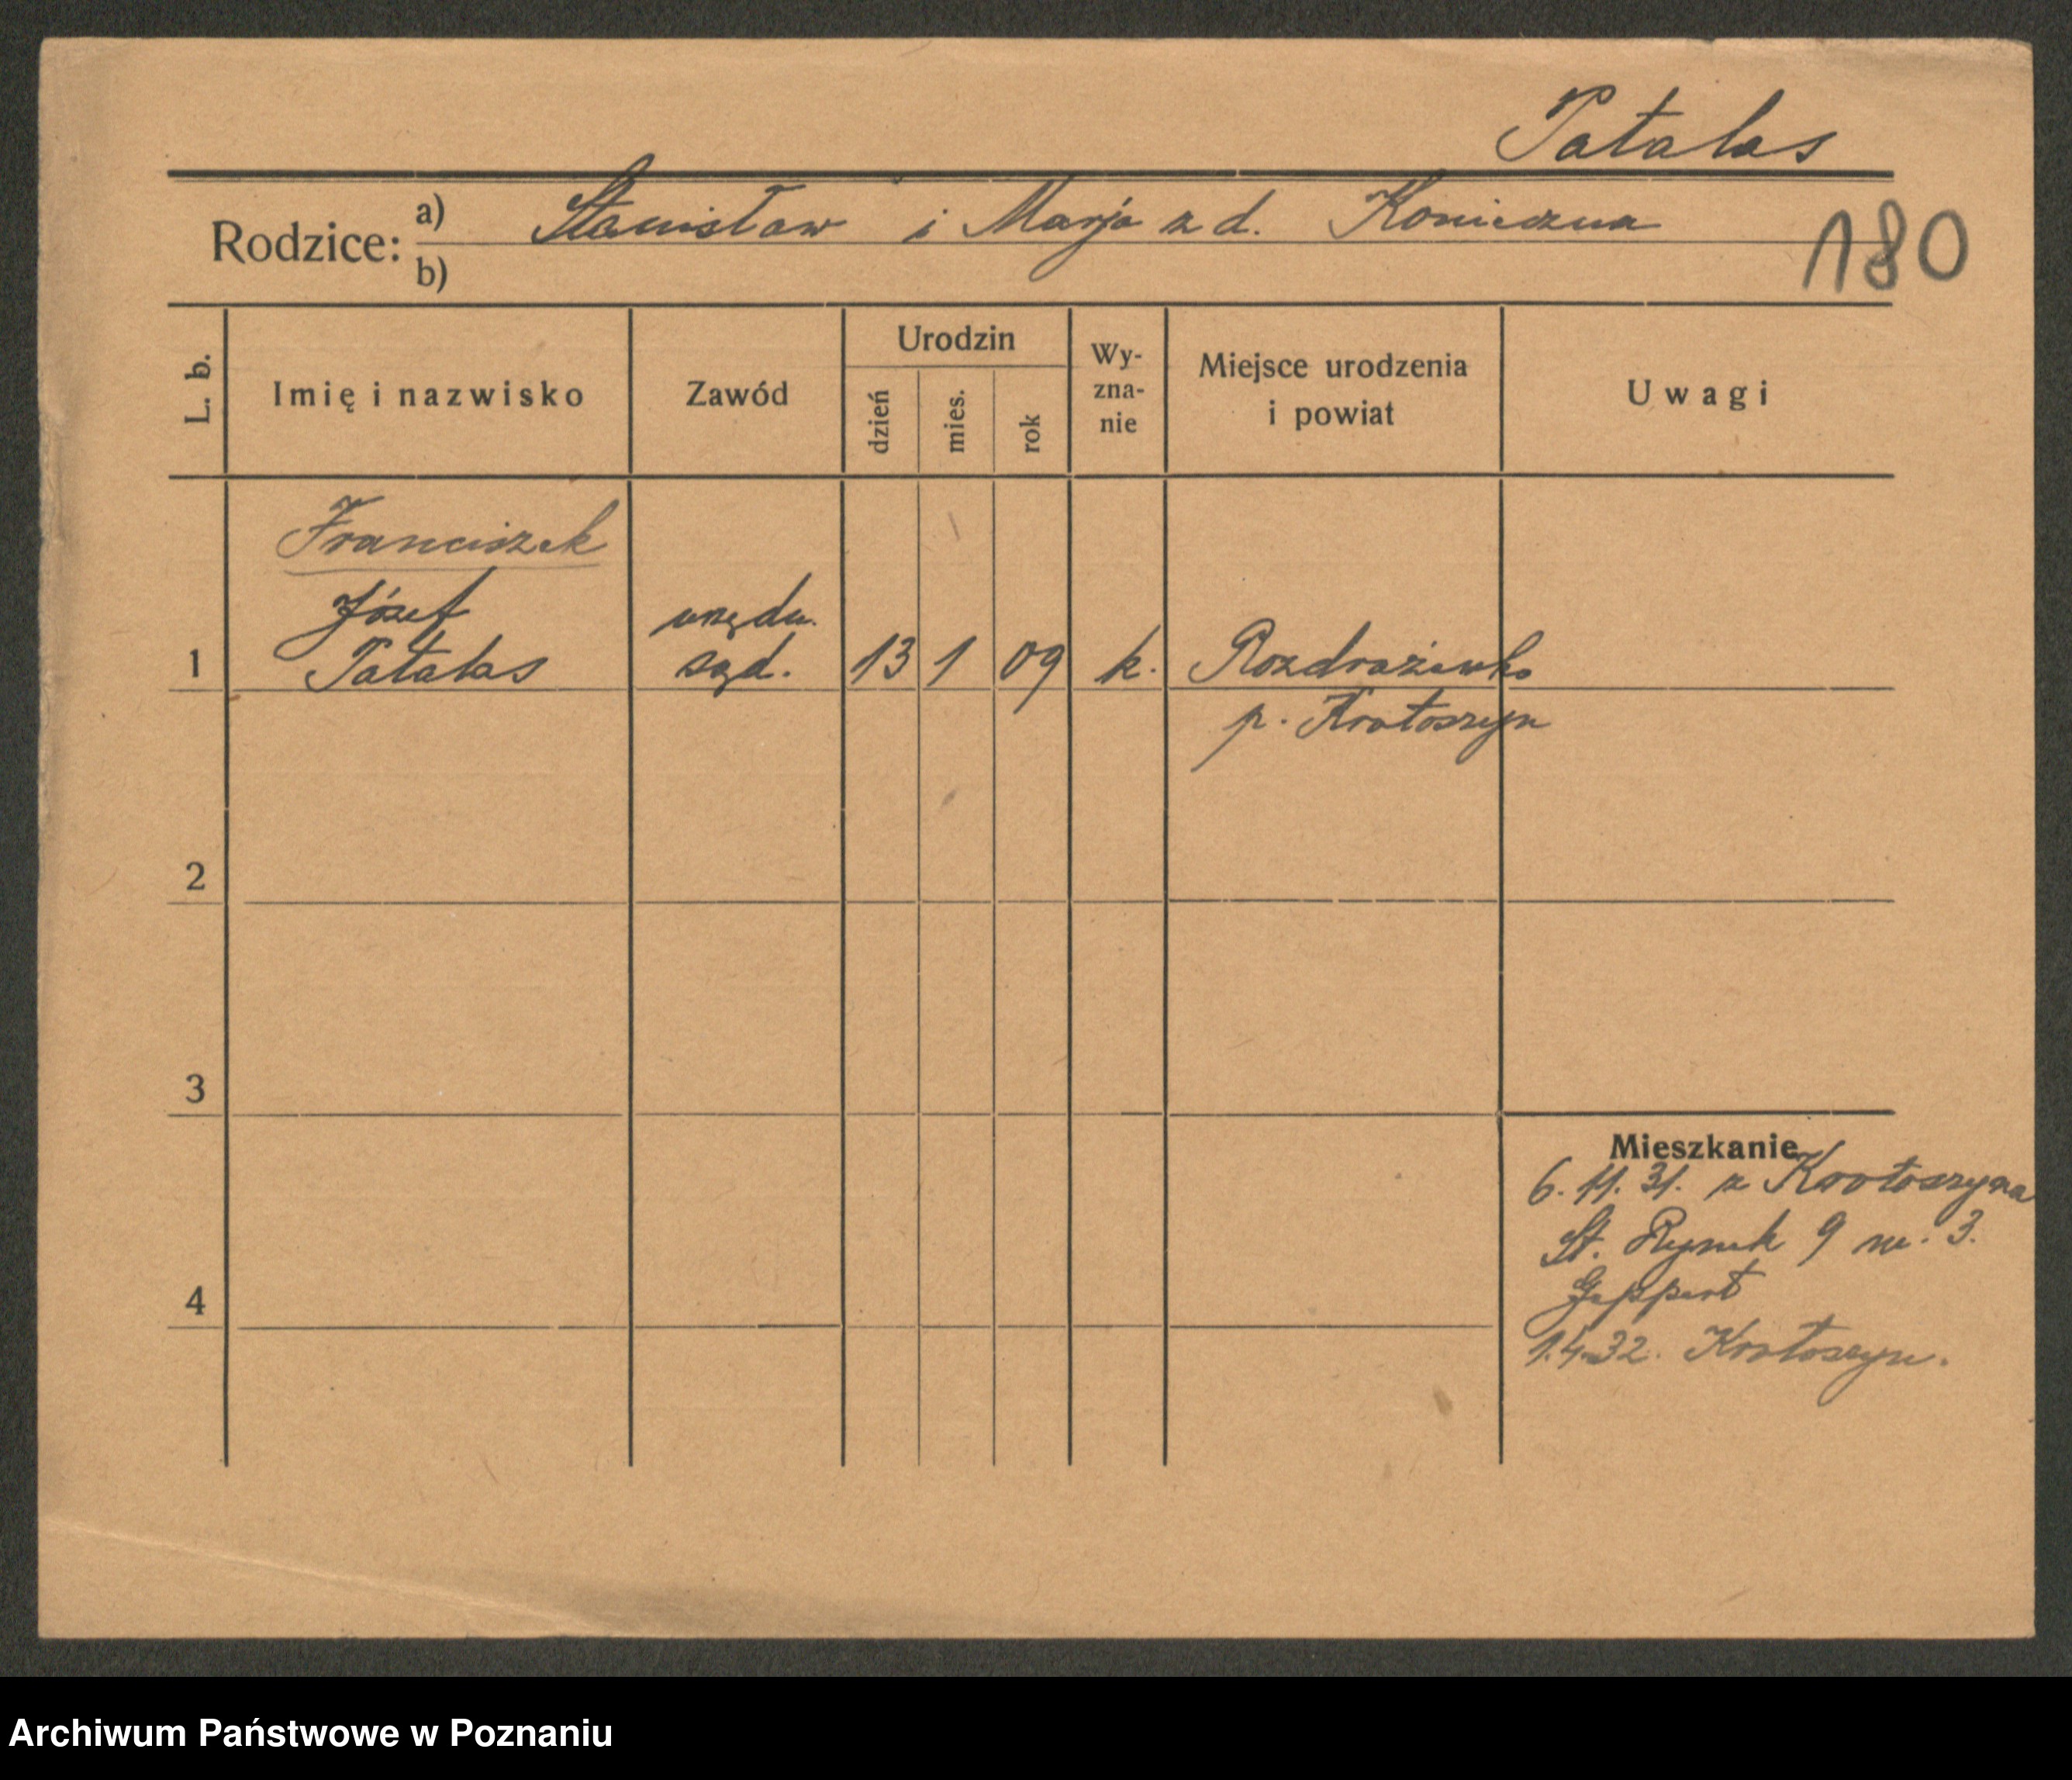 Patalas
Rodzice: a) Stanisław i Marja z d. Konieczna
b)
180
L. b.
Imię i nazwisko
Zawód
Urodzin
dzień
mies.
rok
Wy-
zna-
nie
Miejsce urodzenia
i powiat
Uwagi
Franciszek
Józef urzędn.
1 Patalas sąd. 13 1 09 k. Rozdrażewko
p. Krotoszyn
2
3
Mieszkanie
6. 11. 31. z Krotoszyna
St. Rynek 9 m. 3.
4 Geppert
1.4.32. Krotoszyn.
Archiwum Państwowe w Poznaniu